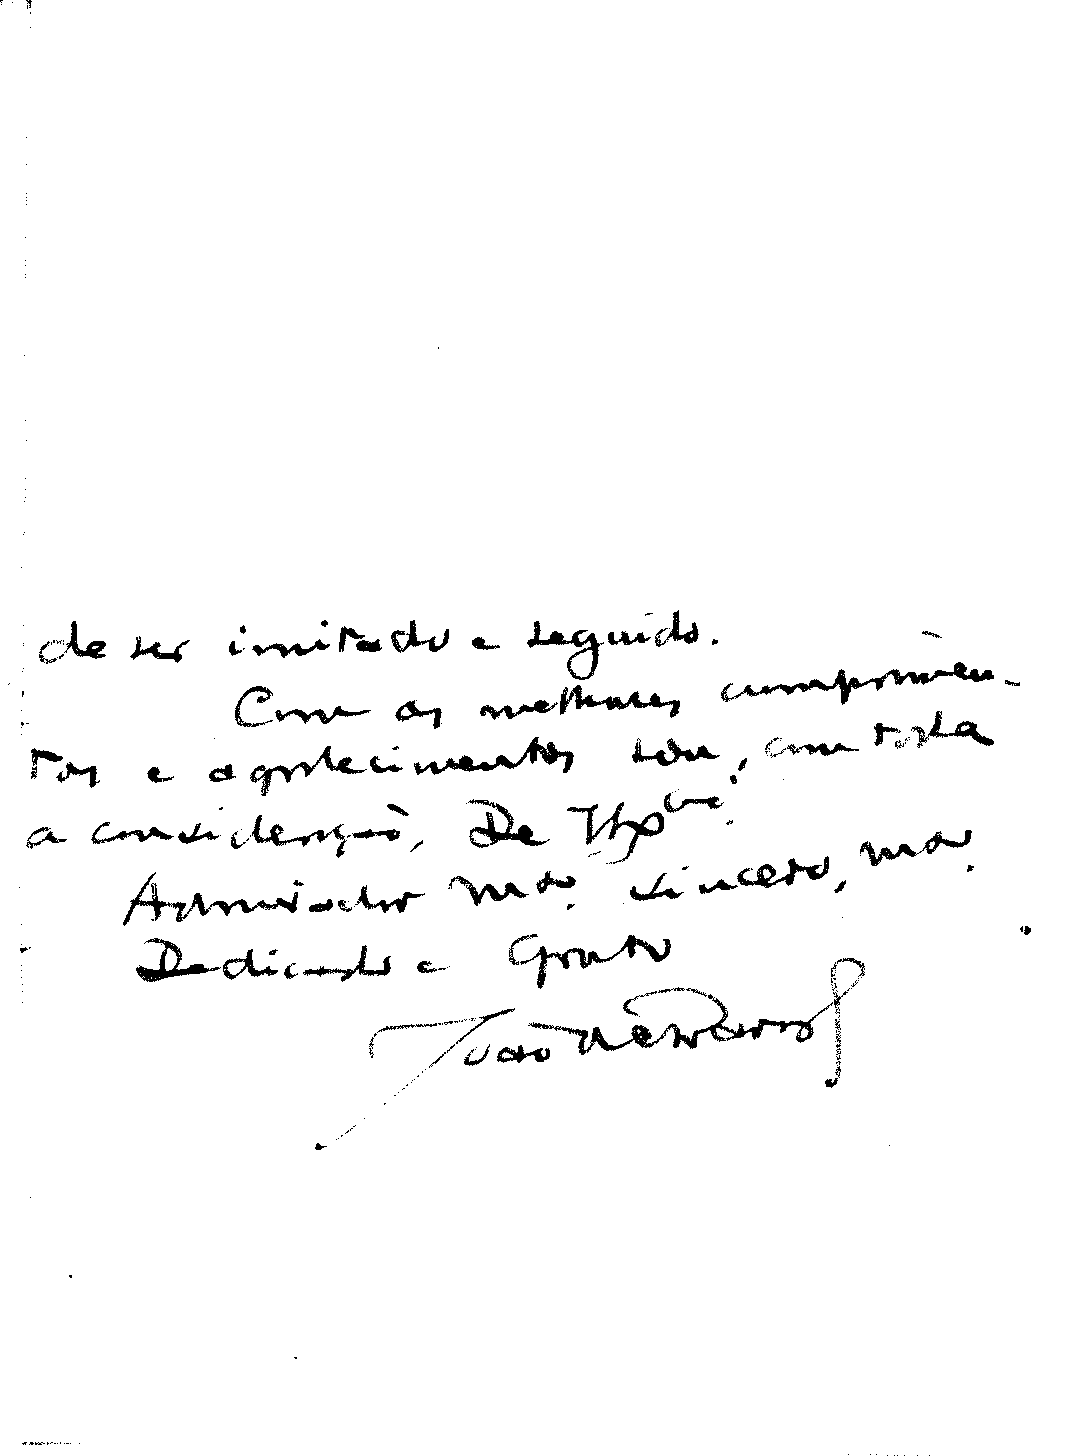 de ser imitado e seguido.
Com os melhores cumprimen-
tos e agradecimentos sou, com toda
a consideração, De
Admirador mto. sincero, mto.
Dedicado e Grato
João de Barros